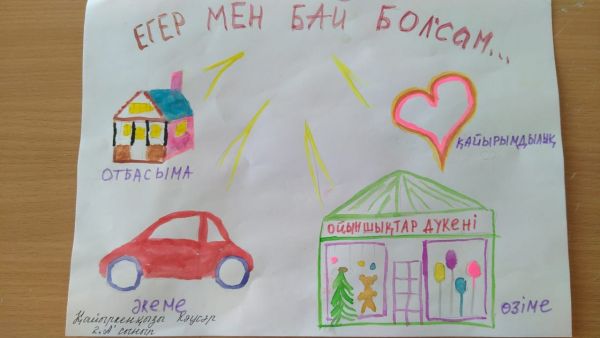 ЕГЕР МЕН БАЙ БОЛСАМ...
ОТБАСЫМА
ҚАЙЫРЫМДЫЛЫҚ
ОЙЫНШЫҚТАР ДҮКЕНІ
ӘКЕМЕ
ӨЗІМЕ
Қайыркенқызы Кәусар
2 "А" сынып